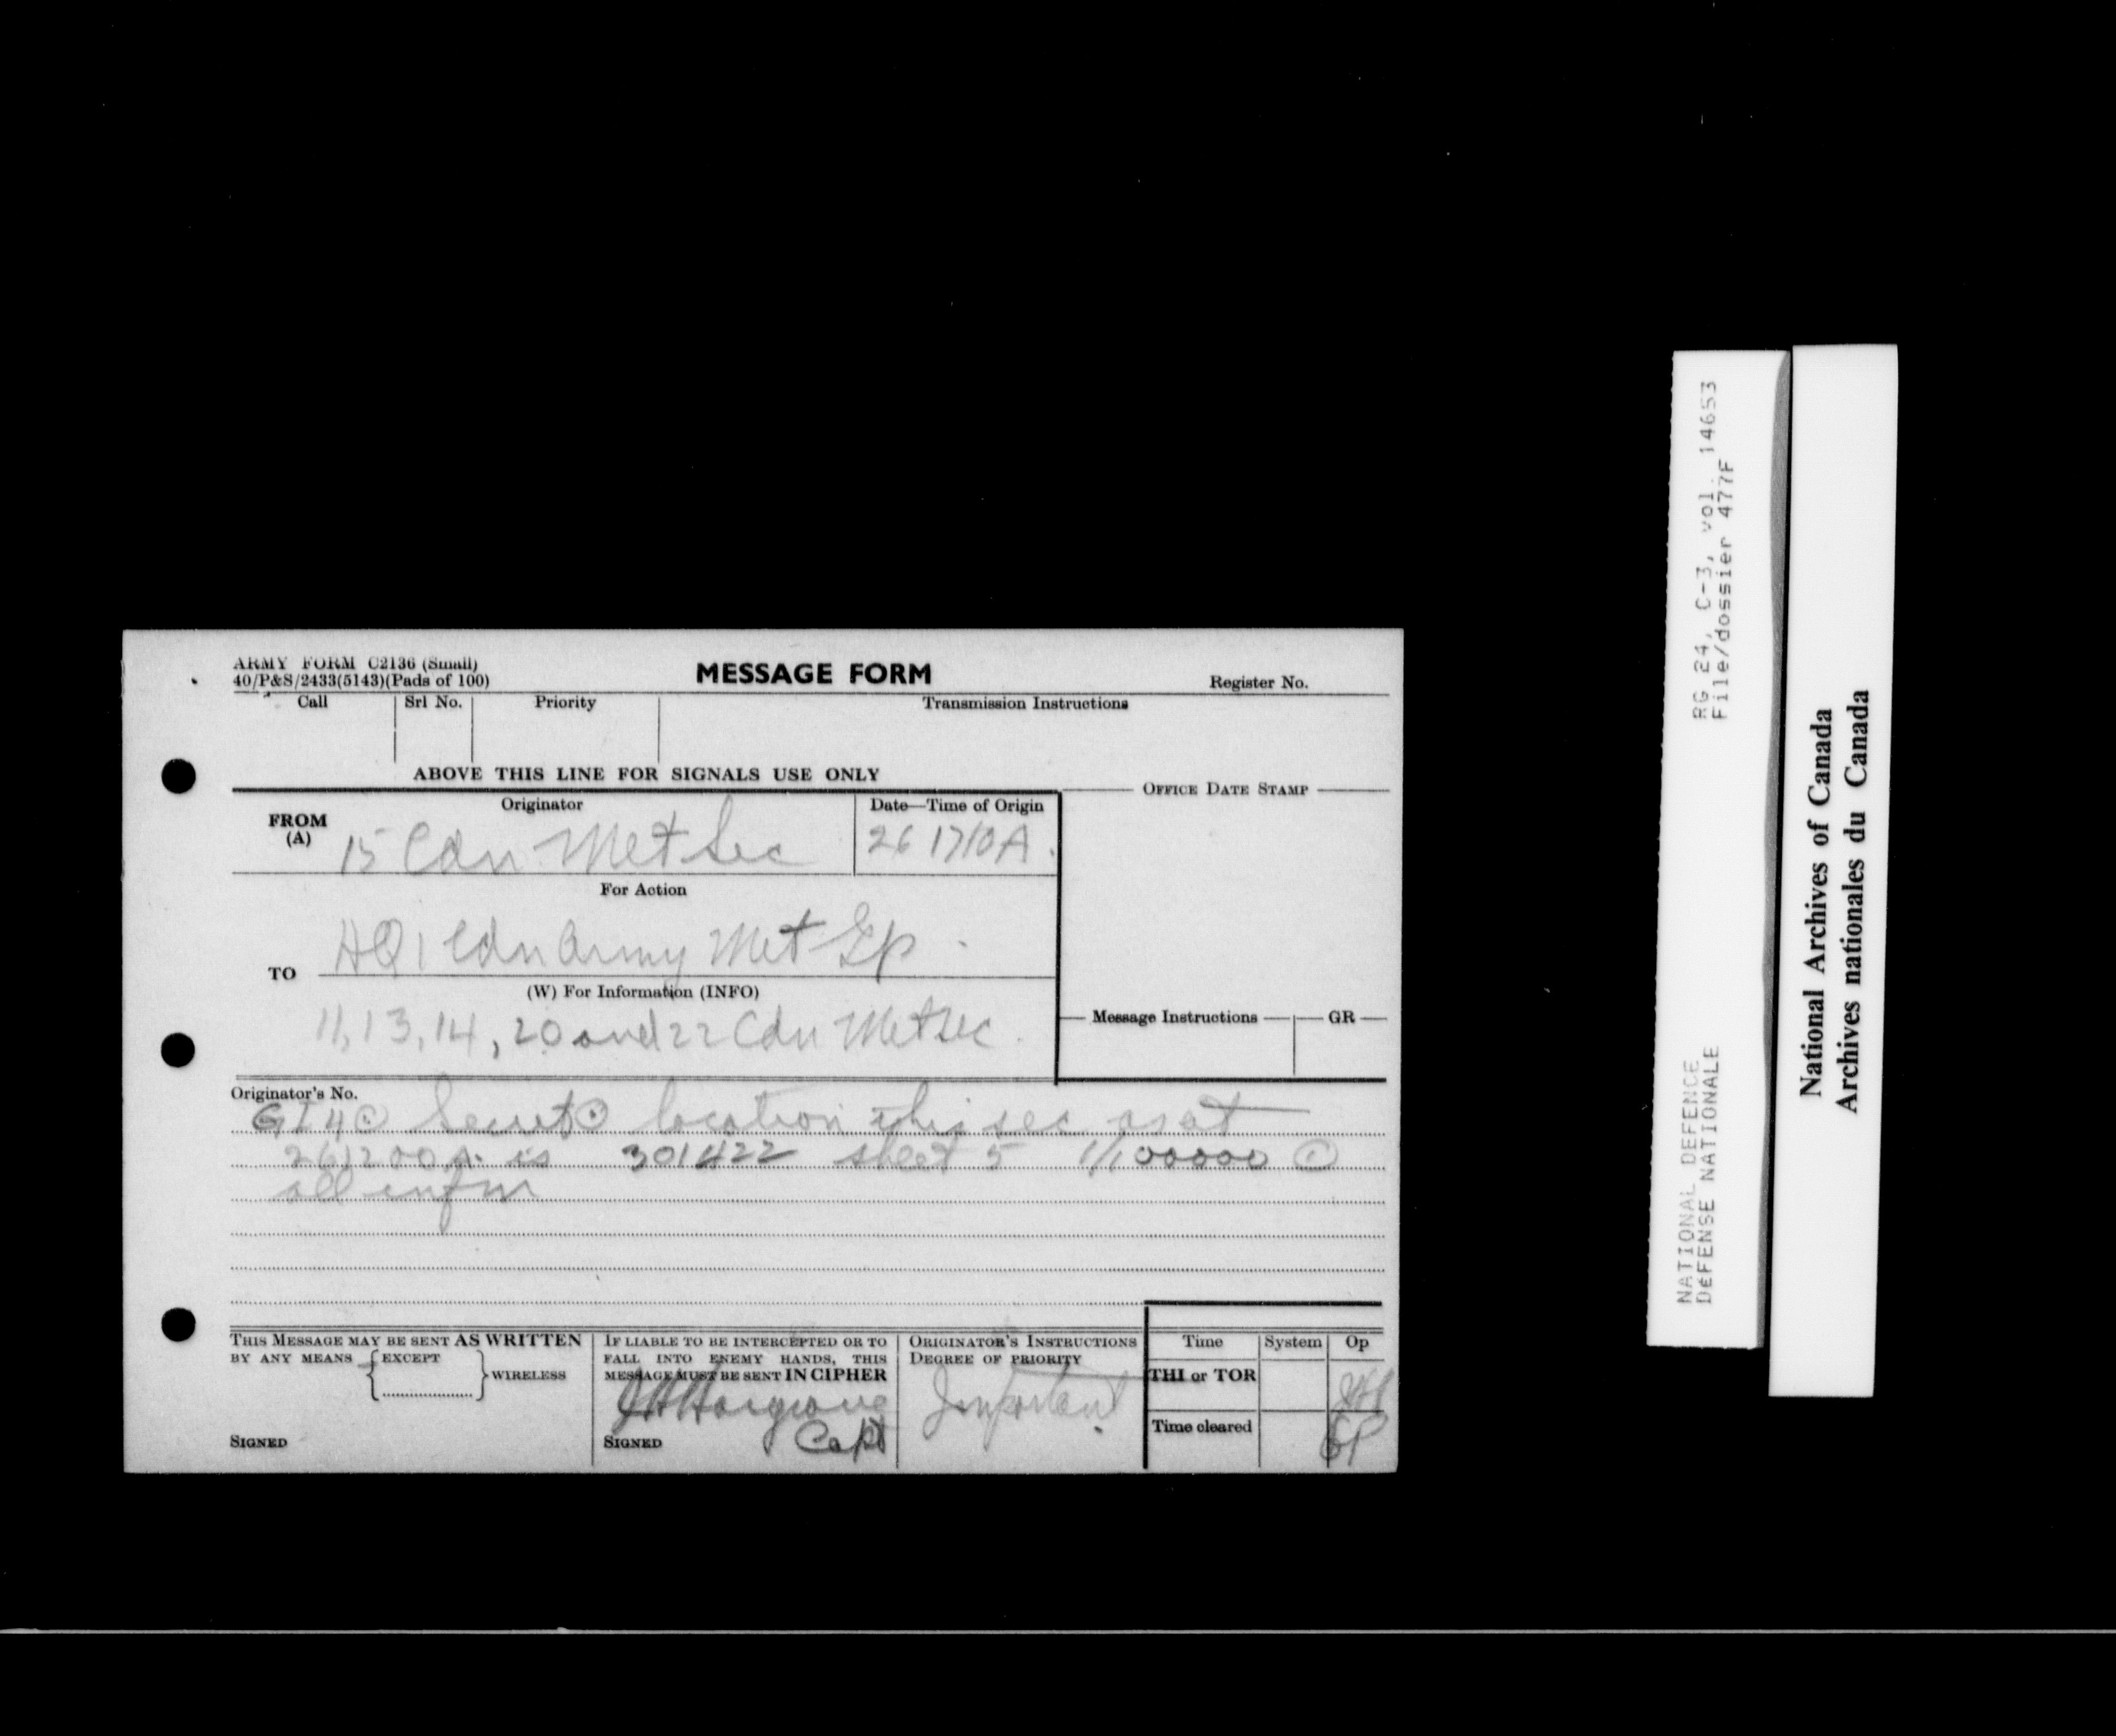 ARMY FORM C2136 (Small)
40/P&S/2433(5143)(Pads of 100)
MESSAGE FORM
Register No.
Call Srl No. Priority Transmission Instructions
ABOVE THIS LINE FOR SIGNALS USE ONLY
OFFICE DATE STAMP
Originator Date—Time of Origin
FROM (A) 15 Cdn Met Sec 26 1710A.
For Action
TO HQ 1 Cdn Army Met Gp
(W) For Information (INFO)
11, 13, 14, 20 and 22 Cdn Met Sec.
Message Instructions GR
Originator's No.
GI 4 ⊙ Secret ⊙ location this sec as at
261200A is 301422 sheet 5 1/100000 ⊙
all infm
THIS MESSAGE MAY BE SENT AS WRITTEN
BY ANY MEANS { EXCEPT } WIRELESS
SIGNED
IF LIABLE TO BE INTERCEPTED OR TO
FALL INTO ENEMY HANDS, THIS
MESSAGE MUST BE SENT IN CIPHER
JH Hargrove
SIGNED Capt
ORIGINATOR'S INSTRUCTIONS
DEGREE OF PRIORITY
Important
Time System Op
THI or TOR
Time cleared
RG 24, C-3, vol. 14653
File/dossier 477F
NATIONAL DEFENCE
DéFENSE NATIONALE
National Archives of Canada
Archives nationales du Canada